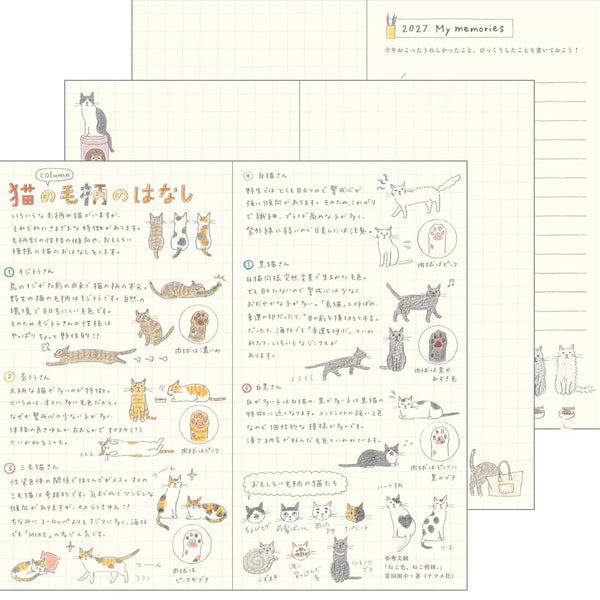 2027 My memories
今年おこったうれしかったこと、びっくりしたことを書いておこう!
column
猫の毛柄のはなし
いろいろな毛柄の猫がいますが、
それぞれにさまざまな特徴があります。
毛柄別の性格の傾向や、おもしろい
模様の猫のおはなしをします。
1 キジトラさん
鳥のキジが名前の由来で猫の柄の本元。
野生の猫の毛柄はキジトラです。自然の
環境で目立ちにくい毛色です。
そのためキジトラさんの性格は
やっぱりちょっと野性的!!
肉球は濃いめ
2 茶トラさん
大柄な猫が多いのが特徴。
というのは、オスに多い毛色だから。
なぜか警戒心の少ない子が多く
体格の良さゆえかおおらかで
といわれることも。
肉球はピンク
3 三毛猫さん
性染色体の関係でほとんどがメス。オスの
三毛猫は奇跡的です。気まぐれでツンデレな
傾向がありますが、メスらしさゆえ!?
ちなみにヨーロッパよりもアジアに多く、海外
でも「MIKE」の名で人気です。
つーん
つーん
肉球は
ピンクやブチ
4 白猫さん
野生ではとても目立つので警戒心が
強い傾向があります。そのため、これがり
で繊細、プライド高めな子が多く、
紫外線に弱いので日差しには注意。
肉球はピンク
5 黒猫さん
白猫同様突然変異で生まれた毛色。
でも目立たないので警戒心は少なく
おだやかな子が多い。「烏猫」と呼ばれ
幸運の印だったり、「目の前を横切ると不吉」
だったり、海外でも「幸運を呼ぶ」といわ
れたり、いろいろなジンクスが
あります。
肉球は黒や
あずき色
6 白黒さん
白が多い子は白猫の、黒が多い子は黒猫の
特徴に近くなります。コントラストの強い2色
なので個性的な模様が多いです。
浮世絵にも好んだ毛色といわれています。
肉球はピンクに
黒のブチ
おもしろい毛柄の猫たち
ちょびひげ
前髪ぱっつん
困った
まゆ
セパレート
うずまき
ハート柄
水玉
参考文献
「ねこ色、ねこ模様。」
富田園子・著(ナツメ社)